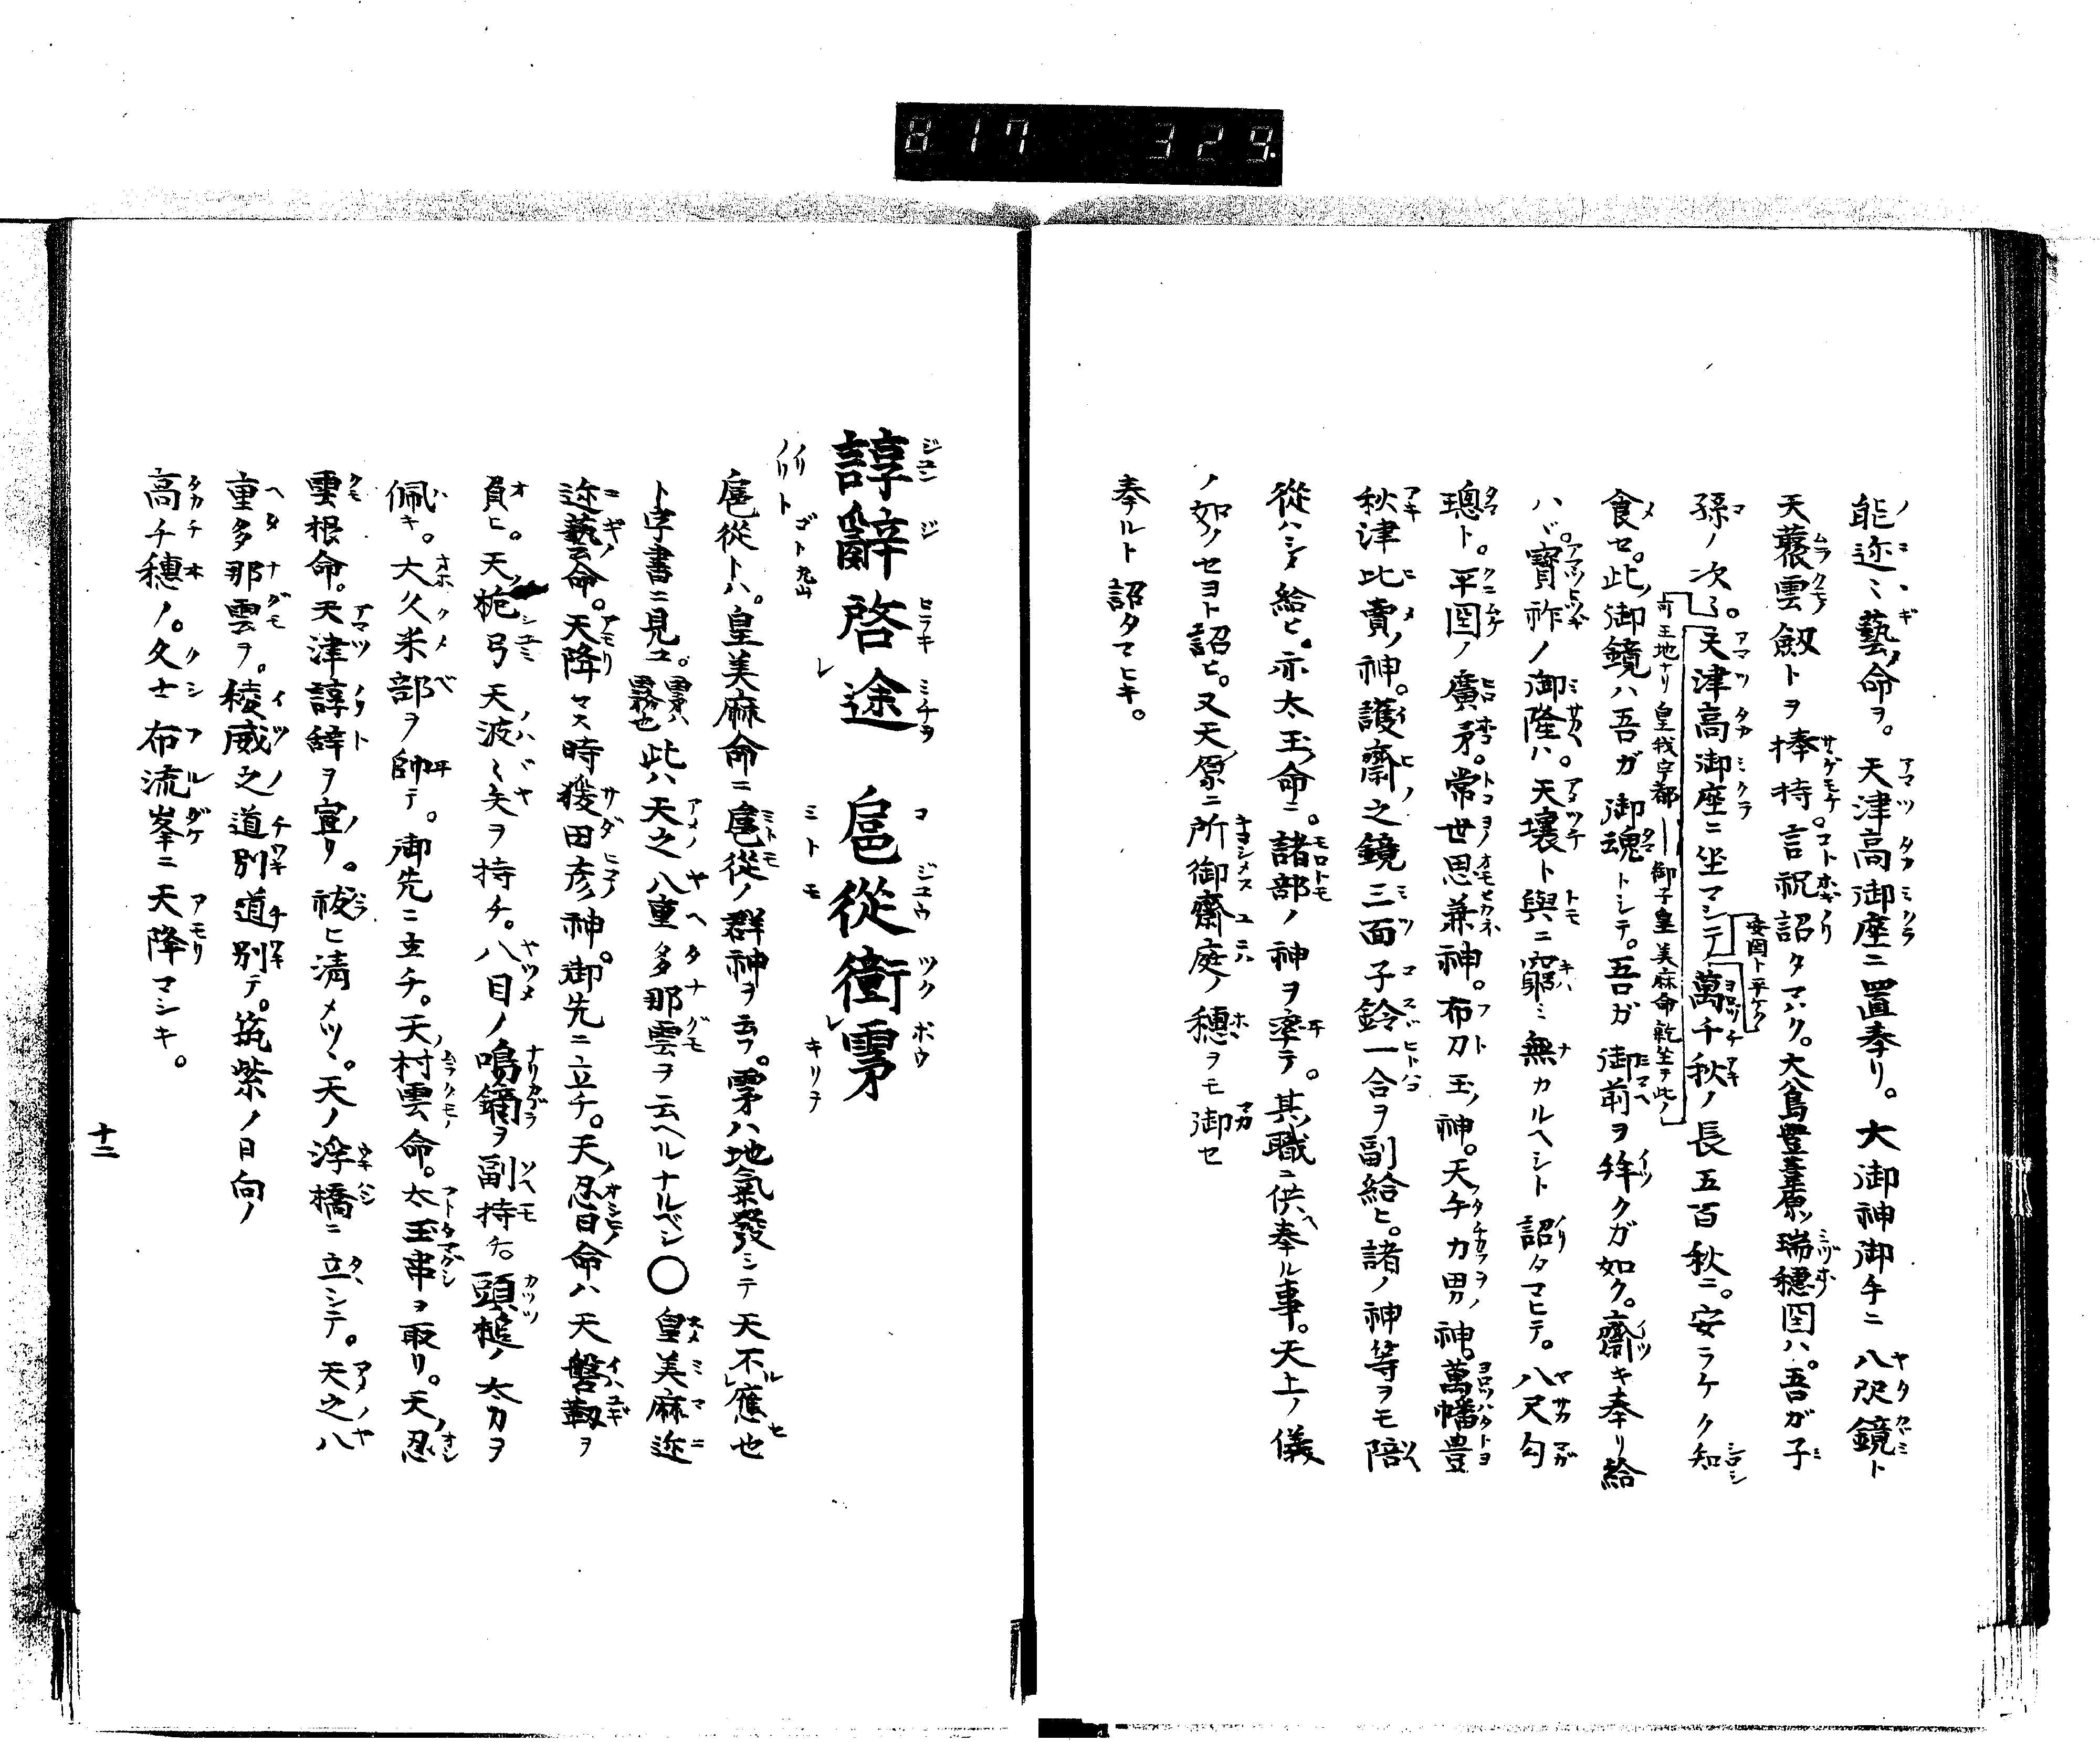 817 329
能迩ミ藝ノ命ヲ。天津高御座ニ置奉リ。大御神御手ニ八咫鏡ト
天叢雲劔トヲ捧持。言祝詔タマハク。大八島豊葦原ノ瑞穗国ハ。吾ガ子
孫ノ次々。天津高御座ニ坐マシテ。萬千秋ノ長五百秋ニ。安ラケク知
安国ト平ケク
可王地ナリ皇我宇都ー御子皇美麻命乾坐テ此ノ
食セ。此ノ御鏡ハ吾ガ御魂トシテ。吾ガ御前ヲ拜クガ如ク。齋キ奉リ給
ハヾ。寶祚ノ御隆ハ。天壤ト與ニ窮ミ無カルヘシト詔タマヒテ。八尺勾
璁ト。平国ノ廣矛。常世思兼神。布刀玉ノ神。天手力男神。萬幡豊
秋津比賣ノ神。護齋之鏡三面子鈴一合ヲ副給ヒ。諸ノ神等ヲモ陪
從ハシメ給ヒ。亦太玉ノ命ニ。諸部ノ神ヲ率テ。其職ニ供ヘ奉ル事。天上ノ儀
ノ如クセヨト詔ヒ。又天原ニ所御齋庭ノ穗ヲモ御セ
奉ルト詔タマヒキ。
諄辭啓途 扈從衝雺
ジユン ジ ヒラキ ミチヲ コ ジユウ ツク ボウ
ノリト ゴト ミトモ キリヲ
扈從トハ。皇美麻命ニ扈從ノ群神ヲ云フ。雺ハ地氣發シテ天不應也
ト字書ニ見ユ。雺ハ霧也此ハ天之八重多那雲ヲ云ヘルナルベシ〇皇美麻迩
迩藝命。天降マス時猨田彦神。御先ニ立チ。天ノ忍日命ハ天磐靫ヲ
負ヒ。天ノ梔弓天波々矢ヲ持チ。八目ノ鳴鏑ヲ副持チ。頭槌ノ太刀ヲ
佩キ。大久米部ヲ帥テ。御先ニ立チ。天ノ村雲命。太玉串ヲ取リ。天ノ忍
雲根命。天津諄辞ヲ宣リ。祓ヒ清メツヽ。天ノ浮橋ニ立シテ。天之八
重多那雲ヲ。稜威之道別道別テ。筑紫ノ日向ノ
高千穗ノ。久士布流峯ニ天降マシキ。
十二